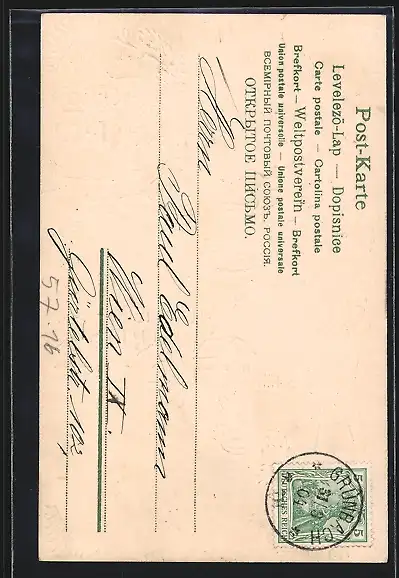 Post-Karte
Levelezö-Lap — Dopisnice
Carte postale — Cartolina postale
Brefkort — Weltpostverein — Brefkort
Union postale universelle — Unione postale universale
ВСЕМІРНЫЙ ПОЧТОВЫЙ СОЮЗЪ. РОССІЯ.
ОТКРЫТОЕ ПИСЬМО.
Herrn
Paul Edelmann
Wien IX.
57.16
GRÜNBACH
5 5
DEUTSCHES REICH